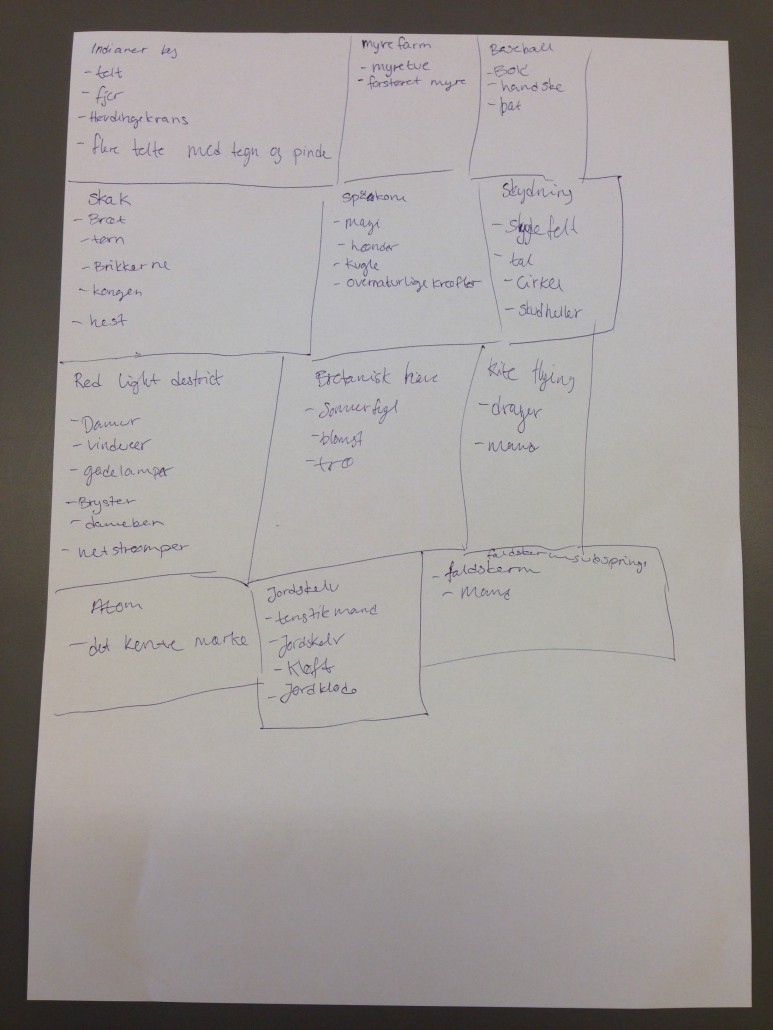 Indianer by
- telt
- fjer
- Høvdingekrans
- flere telte med tegn og pinde
myrefarm
- myretue
- forstørret myre
Baseball
- Bold
- handske
- bat
Skak
- Bræt
- tern
- Brikkerne
- kongen
- hest
Spåkone
- magi
- hænder
- kugle
- overnaturlige kræfter
Skydning
- felt
- tal
- cirkel
- skudheller
Red light destrict
- Damer
- vinduer
- gadelamper
- Bryster
- dameben
- netstrømper
Botanisk have
- Sommerfugl
- blomst
- træ
Kite flying
- drager
- mand
Atom
- det kendte mærke
Jordskelv
- tenstikmand
- Jordskelv
- Kløft
- Jordklode
faldskærmsudspring
- faldskerm
- mand